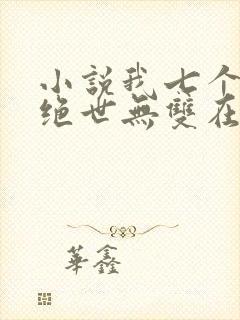 小說我七个
绝世無雙在
華鑫